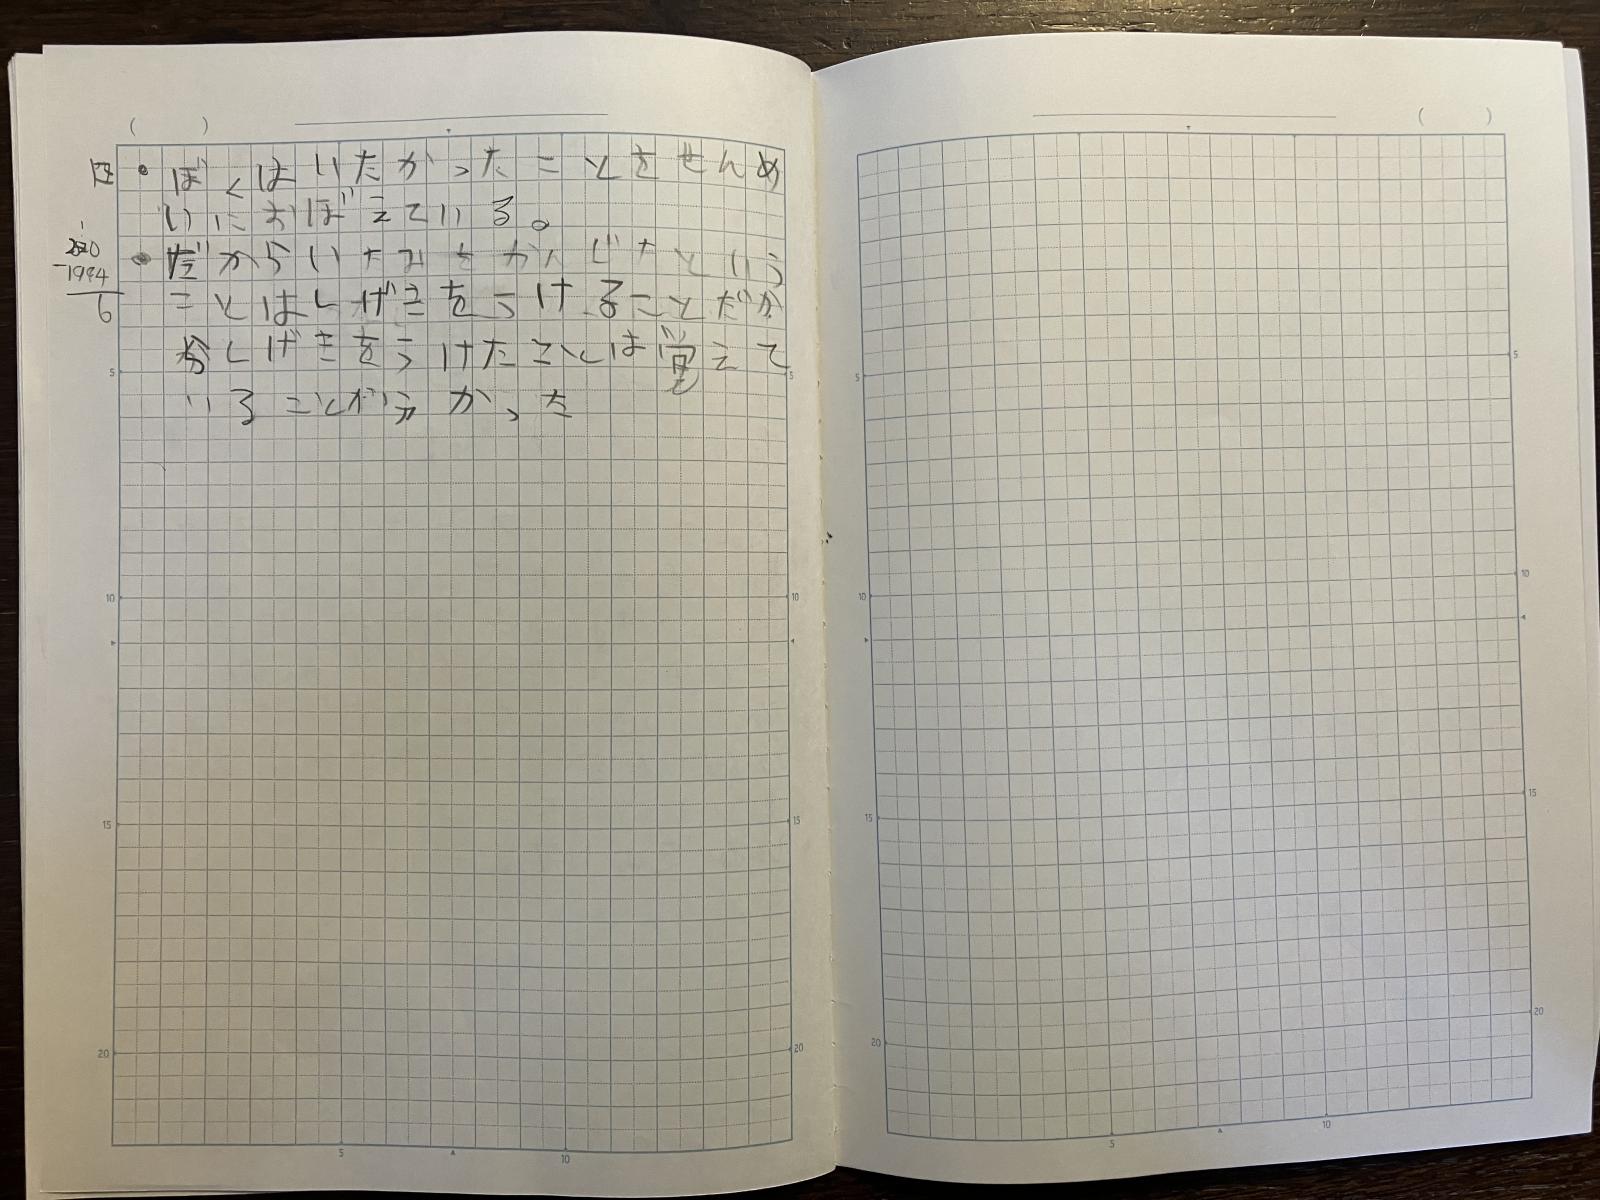 ( )
( )
・ぼくはいたかったことをせんめ
いにおぼえている。
2020
-1994
6
・だからいたみをかんじたという
ことはしげきをうけることだか
らしげきをうけたことは覚えて
いることが分かった
5
5
10
10
15
15
20
20
5
10
5
5
10
10
15
15
20
20
5
10